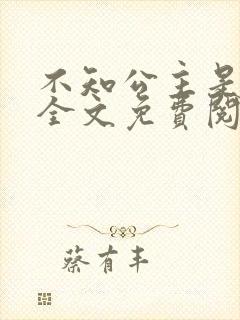 不知公主是
全文免費閱
蔡有丰